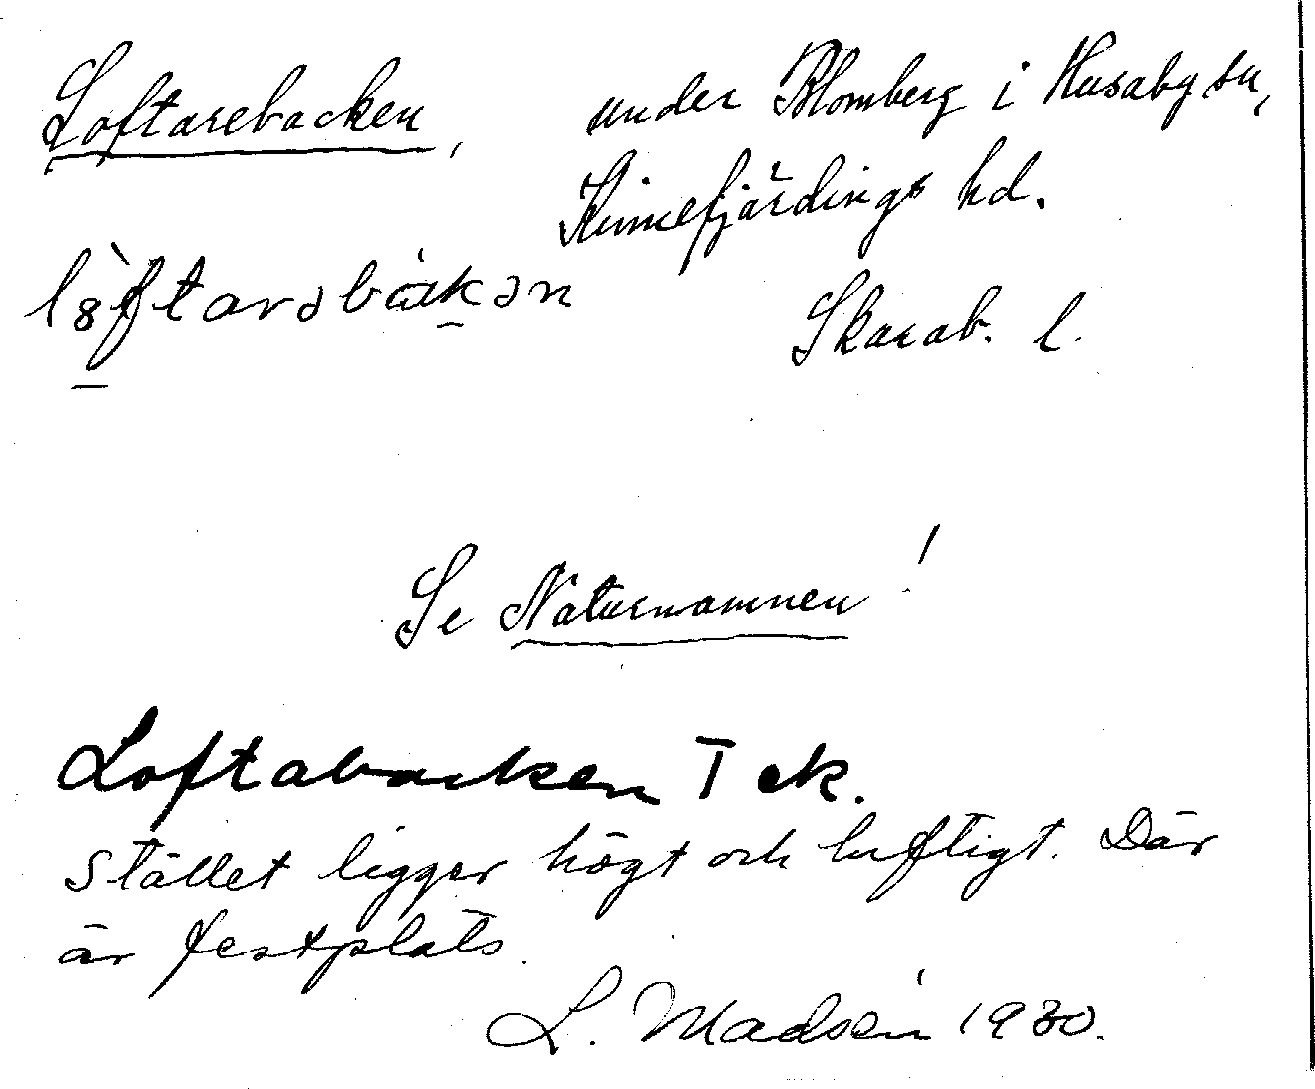 Loftarebacken, under Blomberg i Husaby sn,
Kinnefjärdings hd.
lȯ̀ftarəbàkən
Skarab. l.
Se Naturnamnen!
Loftabacken T ek.
Stället ligger högt och luftigt. Där
är festplats.
L. Madsén 1930.